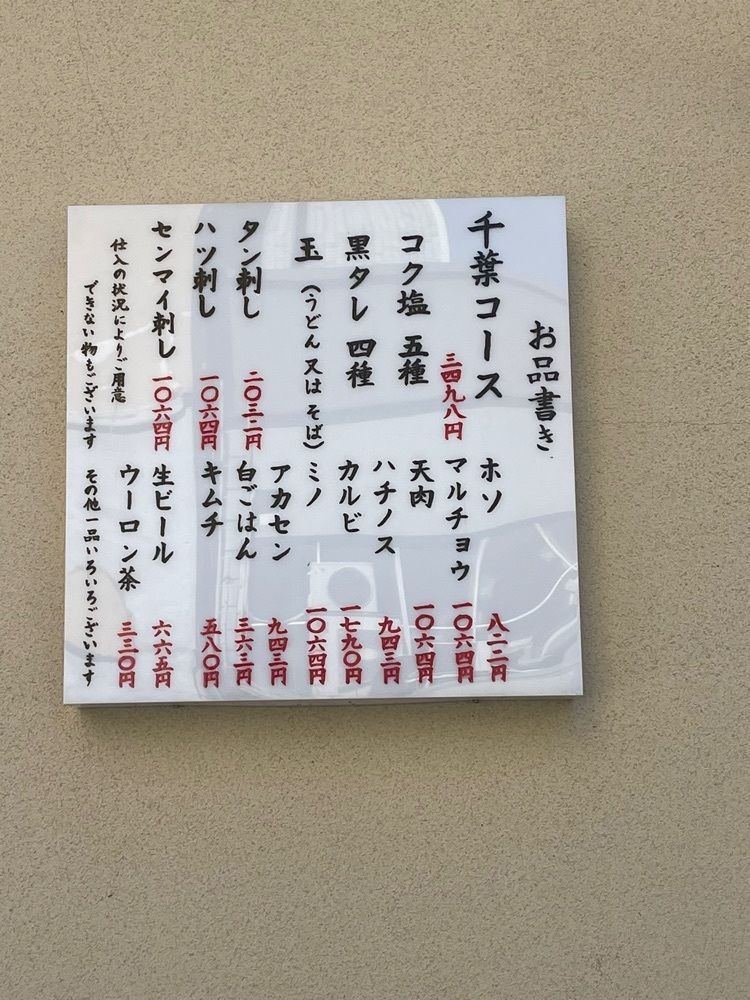 お品書き
千葉コース
三四九八円
コク塩 五種
黒タレ 四種
玉 (うどん 又は そば)
タン刺し 二〇三二円
ハツ刺し 一〇六四円
センマイ刺し 一〇六四円
仕入の状況によりご用意
できない物もございます
ホソ 八二二円
マルチョウ 一〇六四円
天肉 一〇六四円
ハチノス 九四三円
カルビ 一七九〇円
ミノ 一〇六四円
アカセン 九四三円
白ごはん 三六三円
キムチ 五八〇円
生ビール 六六五円
ウーロン茶 三三〇円
その他一品いろいろございます